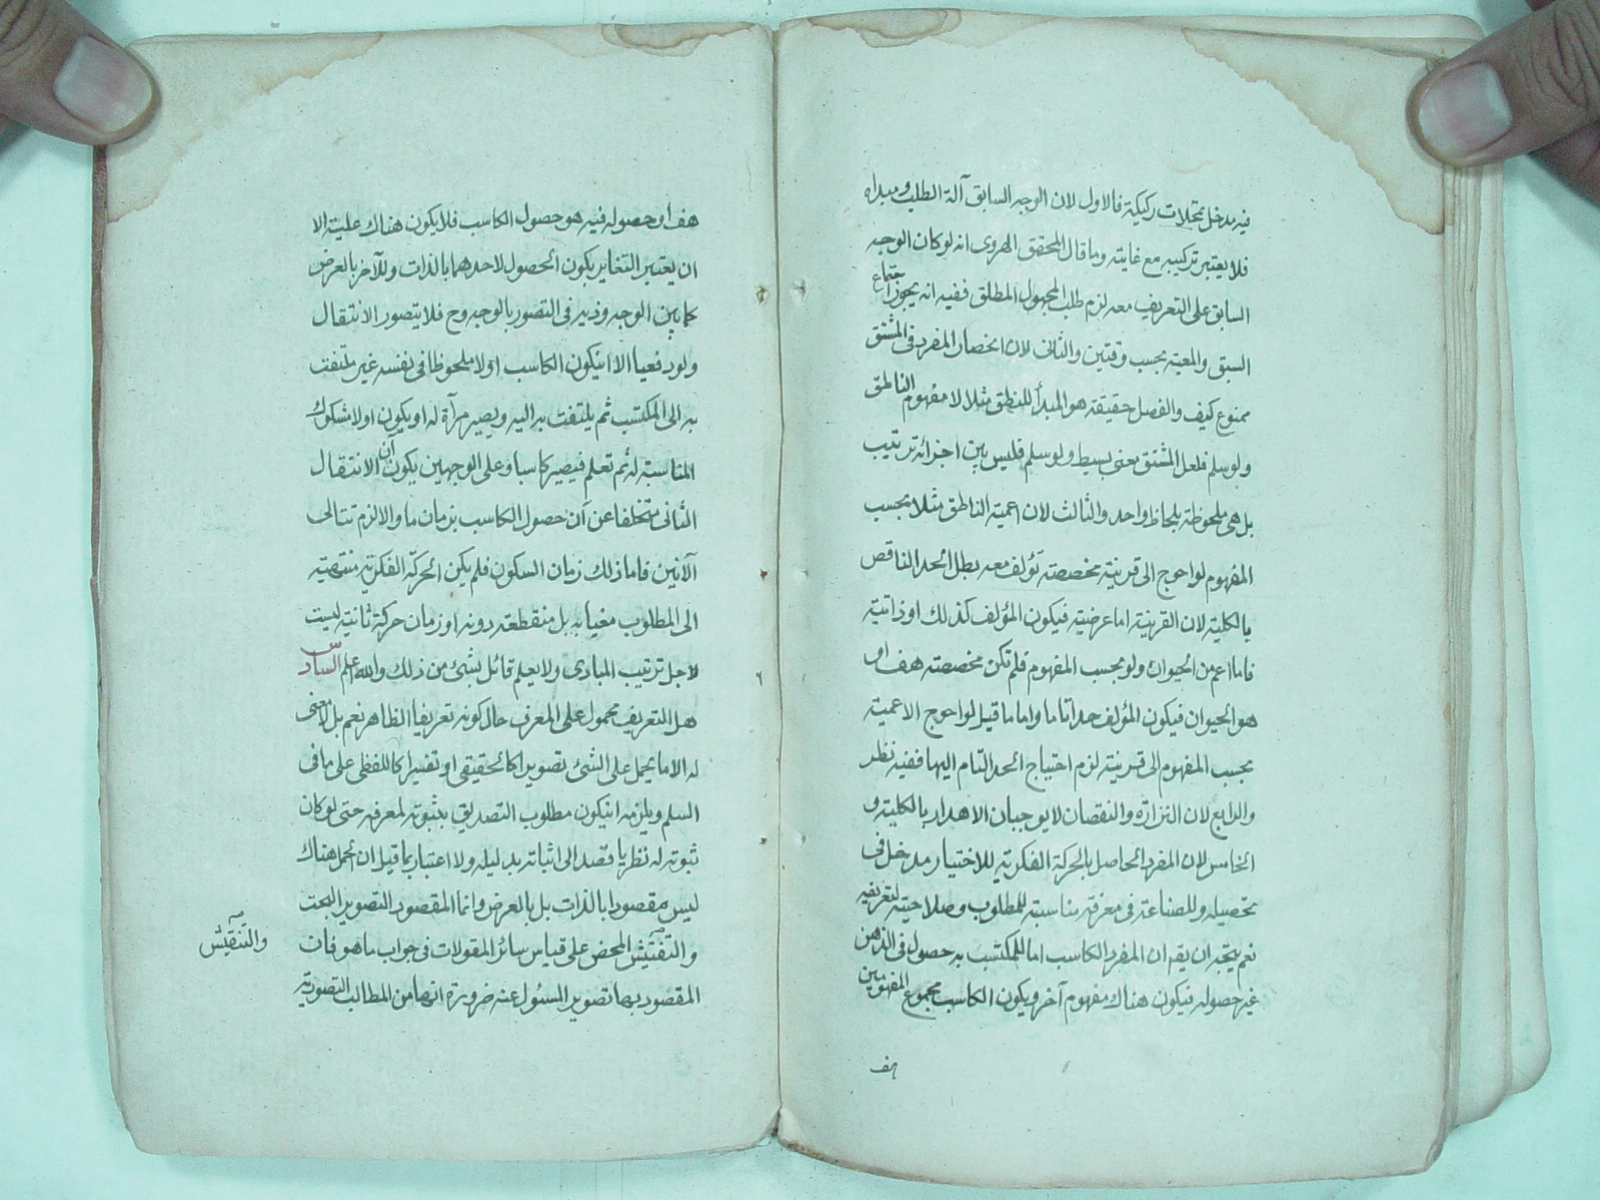 فيه مدخل تمحلات ركيكة فالاول لان الوجه السابق آلة الطلب ومبداه
فلا يعتبر تركيبه مع غايته وما قال المحقق الهروى انه لو كان الوجه
السابق على التعريف معه لزم طلب المجهول المطلق ففيه انه يجوز اجتماع
السبق والمعية بحسب وقتين والثانى لان انحصار المفرد فى المشتق
ممنوع كيف والفصل حقيقة هو المبدأ للنطق مثلا لا مفهوم الناطق
ولو سلم فلعل المشتق معنى بسيط ولو سلم فليس بين اجزائه ترتيب
بل هى ملحوظة بلحاظ واحد والثالث لان اعمية الناطق مثلا بحسب
المفهوم لو احوج الى قرينة مخصصة تؤلف معه بطل الحد الناقص
بالكلية لان القرينة اما عرضية فيكون المؤلف كذلك او ذاتية
فاما اعم من الحيوان ولو بحسب المفهوم فلم تكن مخصصة هف او
هو الحيوان فيكون المؤلف حدا تاما واما ما قيل لو احوج الاعمية
بحسب المفهوم الى قرينة لزم احتياج الحد التام اليها ففيه نظر
والرابع لان النزارة والنقصان لا يوجبان الاهدار بالكلية و
الخامس لان المفرد الحاصل بالحركة الفكرية للاختيار مدخل فى
تحصيله وللصناعة فى معرفة مناسبته للمطلوب وصلاحيته لتعريفه
نعم يتجه ان يقم ان المفرد الكاسب اما للمكتسب به حصول فى الذهن
غير حصوله فيكون هناك مفهوم آخر ويكون الكاسب مجموع المفهومين
هف
هف او حصوله فيه هو حصول الكاسب فلا يكون هناك علية الا
ان يعتبر التغاير بكون الحصول لاحدهما بالذات وللآخر بالعرض
كما بين الوجه وذيه فى التصور بالوجه وح فلا يتصور الانتقال
ولو دفعيا الا انيكون الكاسب اولا ملحوظا فى نفسه غير ملتفت
به الى المكتسب ثم يلتفت به اليه ويصير مرآة له او يكون اولا مشكوك
المناسبة له ثم تعلم فيصير كاسبا وعلى الوجهين يكون آن الانتقال
الثانى متخلفا عن آن حصول الكاسب بزمان ما والا لزم تتالى
الآنين فاما ذلك زمان السكون فلم يكن الحركة الفكرية منتهية
الى المطلوب مغيا به بل منقطعة دونه او زمان حركة ثانية ليست
لاجل ترتيب المبادى ولا يعلم قائل بشئ من ذلك والله اعلم السادس
هل التعريف محمول على المعرف حال كونه تعريفا الظاهر نعم بل لا معنى
له الا ما يحمل على الشئ تصويرا كالحقيقى او تفسيرا كاللفظى على ما فى
السلم ويلزمه انيكون مطلوب التصديق بثبوته لمعرفه حتى لو كان
ثبوته له نظريا قصد الى اثباته بدليله ولا اعتبار بما قيل ان الحمل هناك
ليس مقصودا بالذات بل بالعرض وانما المقصود التصوير البحت
والتفتيش المحض على قياس سائر المقولات فى جواب ما هو فان
والتنقيش
المقصود بها تصوير المسئول عنه ضرورة انها من المطالب التصورية